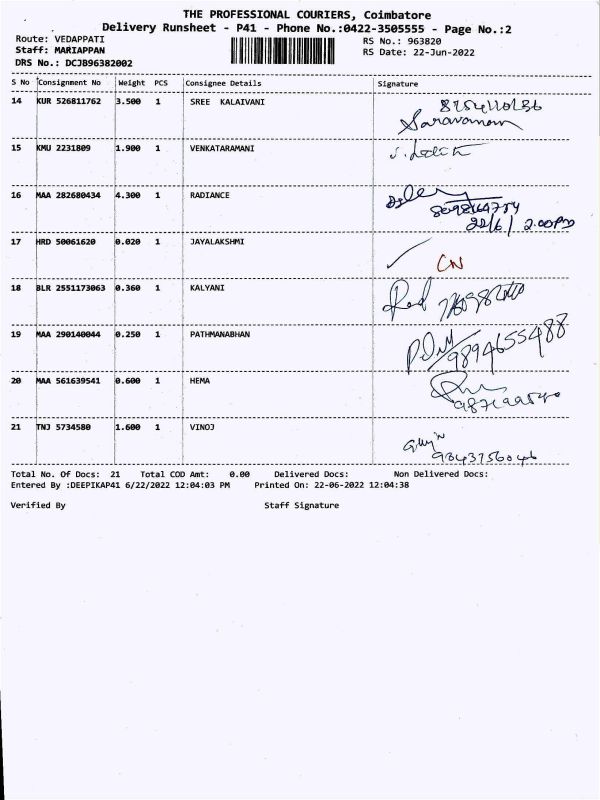 THE PROFESSIONAL COURIERS, Coimbatore
Delivery Runsheet - P41 - Phone No.:0422-3505555 - Page No.:2
Route: VEDAPPATI RS No.: 963820
Staff: MARIAPPAN RS Date: 22-Jun-2022
DRS No.: DCJB96382002
S No Consignment No Weight PCS Consignee Details Signature
14 KUR 526811762 3.500 1 SREE KALAIVANI
Saravanan
15 KMU 2231809 1.900 1 VENKATARAMANI
16 MAA 282680434 4.300 1 RADIANCE
22/6/ 2.00PM
17 HRD 50061620 0.020 1 JAYALAKSHMI
CN
18 BLR 2551173063 0.360 1 KALYANI
19 MAA 290140044 0.250 1 PATHMANABHAN
9894655488
20 MAA 561639541 0.600 1 HEMA
21 TNJ 5734580 1.600 1 VINOJ
Total No. Of Docs: 21 Total COD Amt: 0.00 Delivered Docs: Non Delivered Docs:
Entered By :DEEPIKAP41 6/22/2022 12:04:03 PM Printed On: 22-06-2022 12:04:38
Verified By Staff Signature